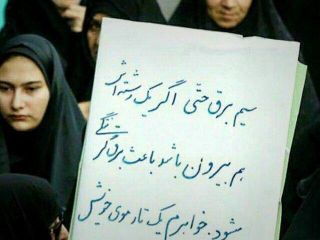 سیم برق حتی اگر یک رشته اش
هم بیرون باشد باعث برق گرفتگی
شود. خواهرم یک تار موی خویش